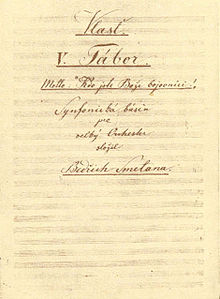 Vlast
V. Tábor.
Motto: "Kdo jste Boží bojovníci"!
Symfonická báseň
pro
velký Orkester
složil
Bedřich Smetana.